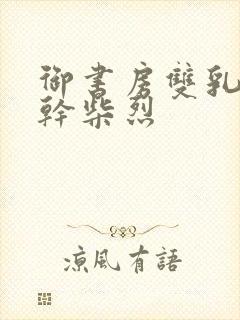 御書房雙乳
幹柴烈
涼風有語